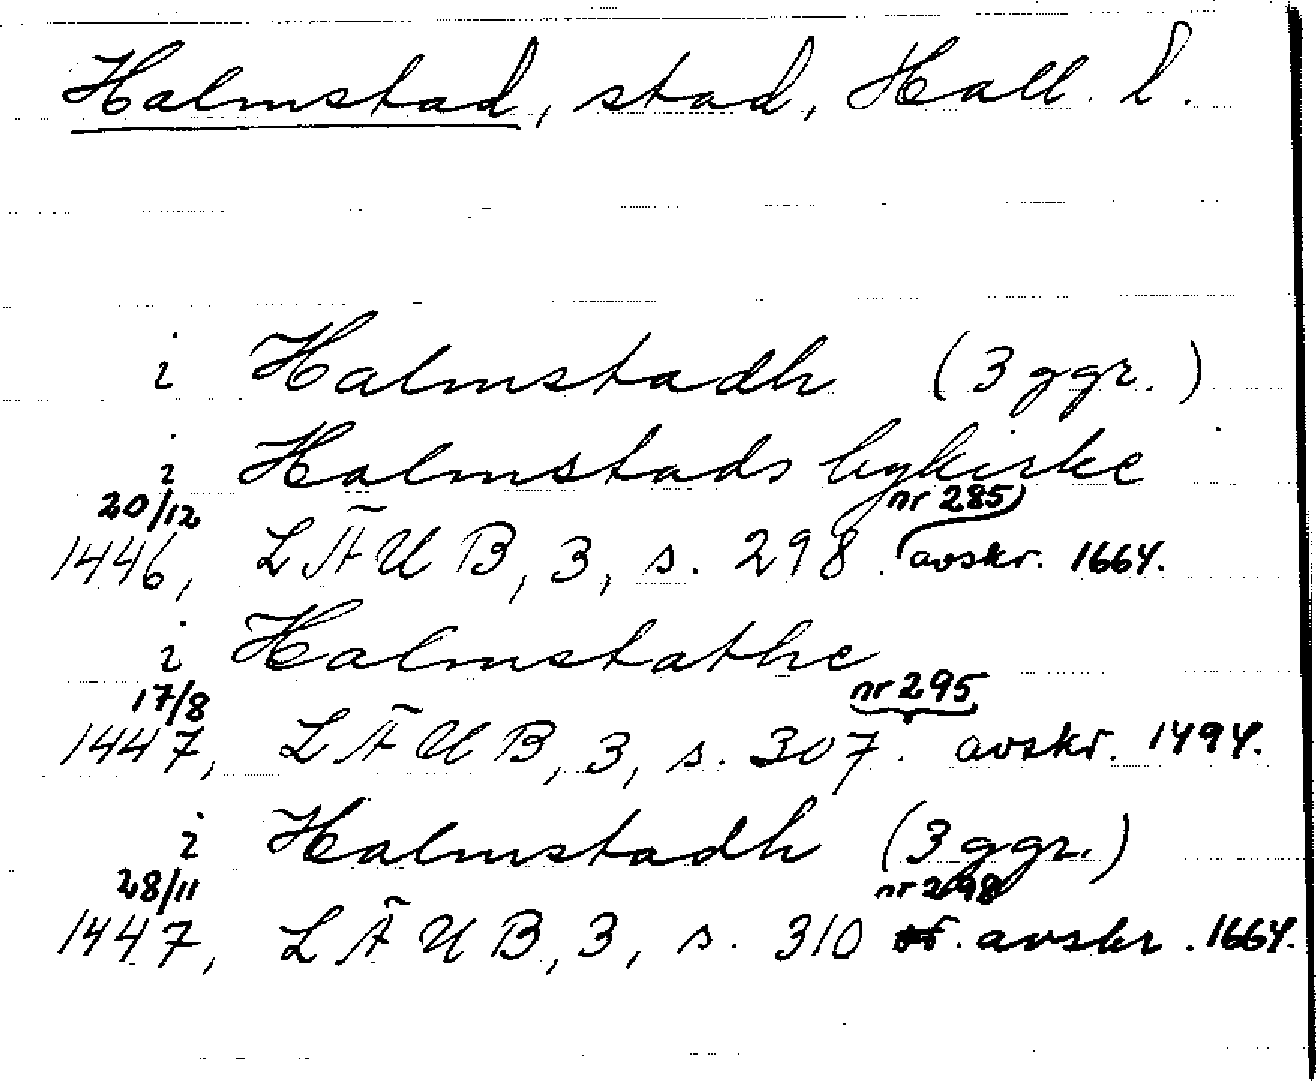 Halmstad, stad, Hall. l.
i Halmstadh (3 ggr.)
i Halmstads bykirke
20/12 nr 285
1446, LÄUB, 3, s. 298. avskr. 1664.
i Halmstathe
17/8 nr 295
1447, LÄUB, 3, s. 307. avskr. 1494.
i Halmstadh (3 ggr.)
28/11 nr 298
1447, LÄUB, 3, s. 310 avskr. 1664.